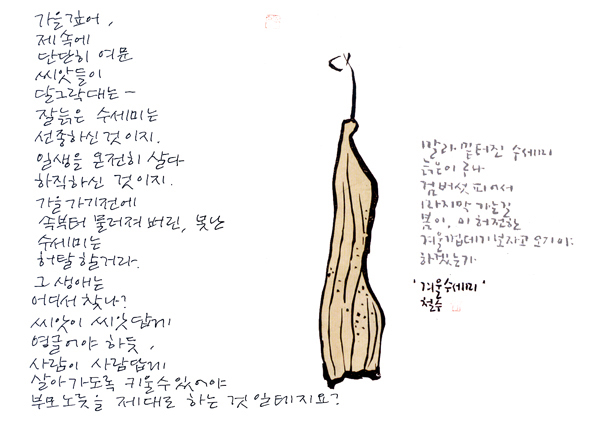 가을 깊어,
제 속에
단단히 여문
씨앗들이
달그락대는 -
잘 늙은 수세미는
선종하신 것이지.
일생을 온전히 살다
하직하신 것이지.
가을 가기 전에
속부터 물러져 버린, 못난
수세미는
허탈할거라.
그 생애는
어디서 찾나?
씨앗이 씨앗답게
영글어야 하듯,
사람이 사람답게
살아가도록 키울 수 있어야
부모노릇을 제대로 하는 것일테지요?
말라 밑 터진 수세미
늙은이로나
검버섯 피어서
마지막 가는 길
봄이, 이 허전한
겨울 껍데기 보자고 오기야
하겠는가
'겨울수세미'
철수